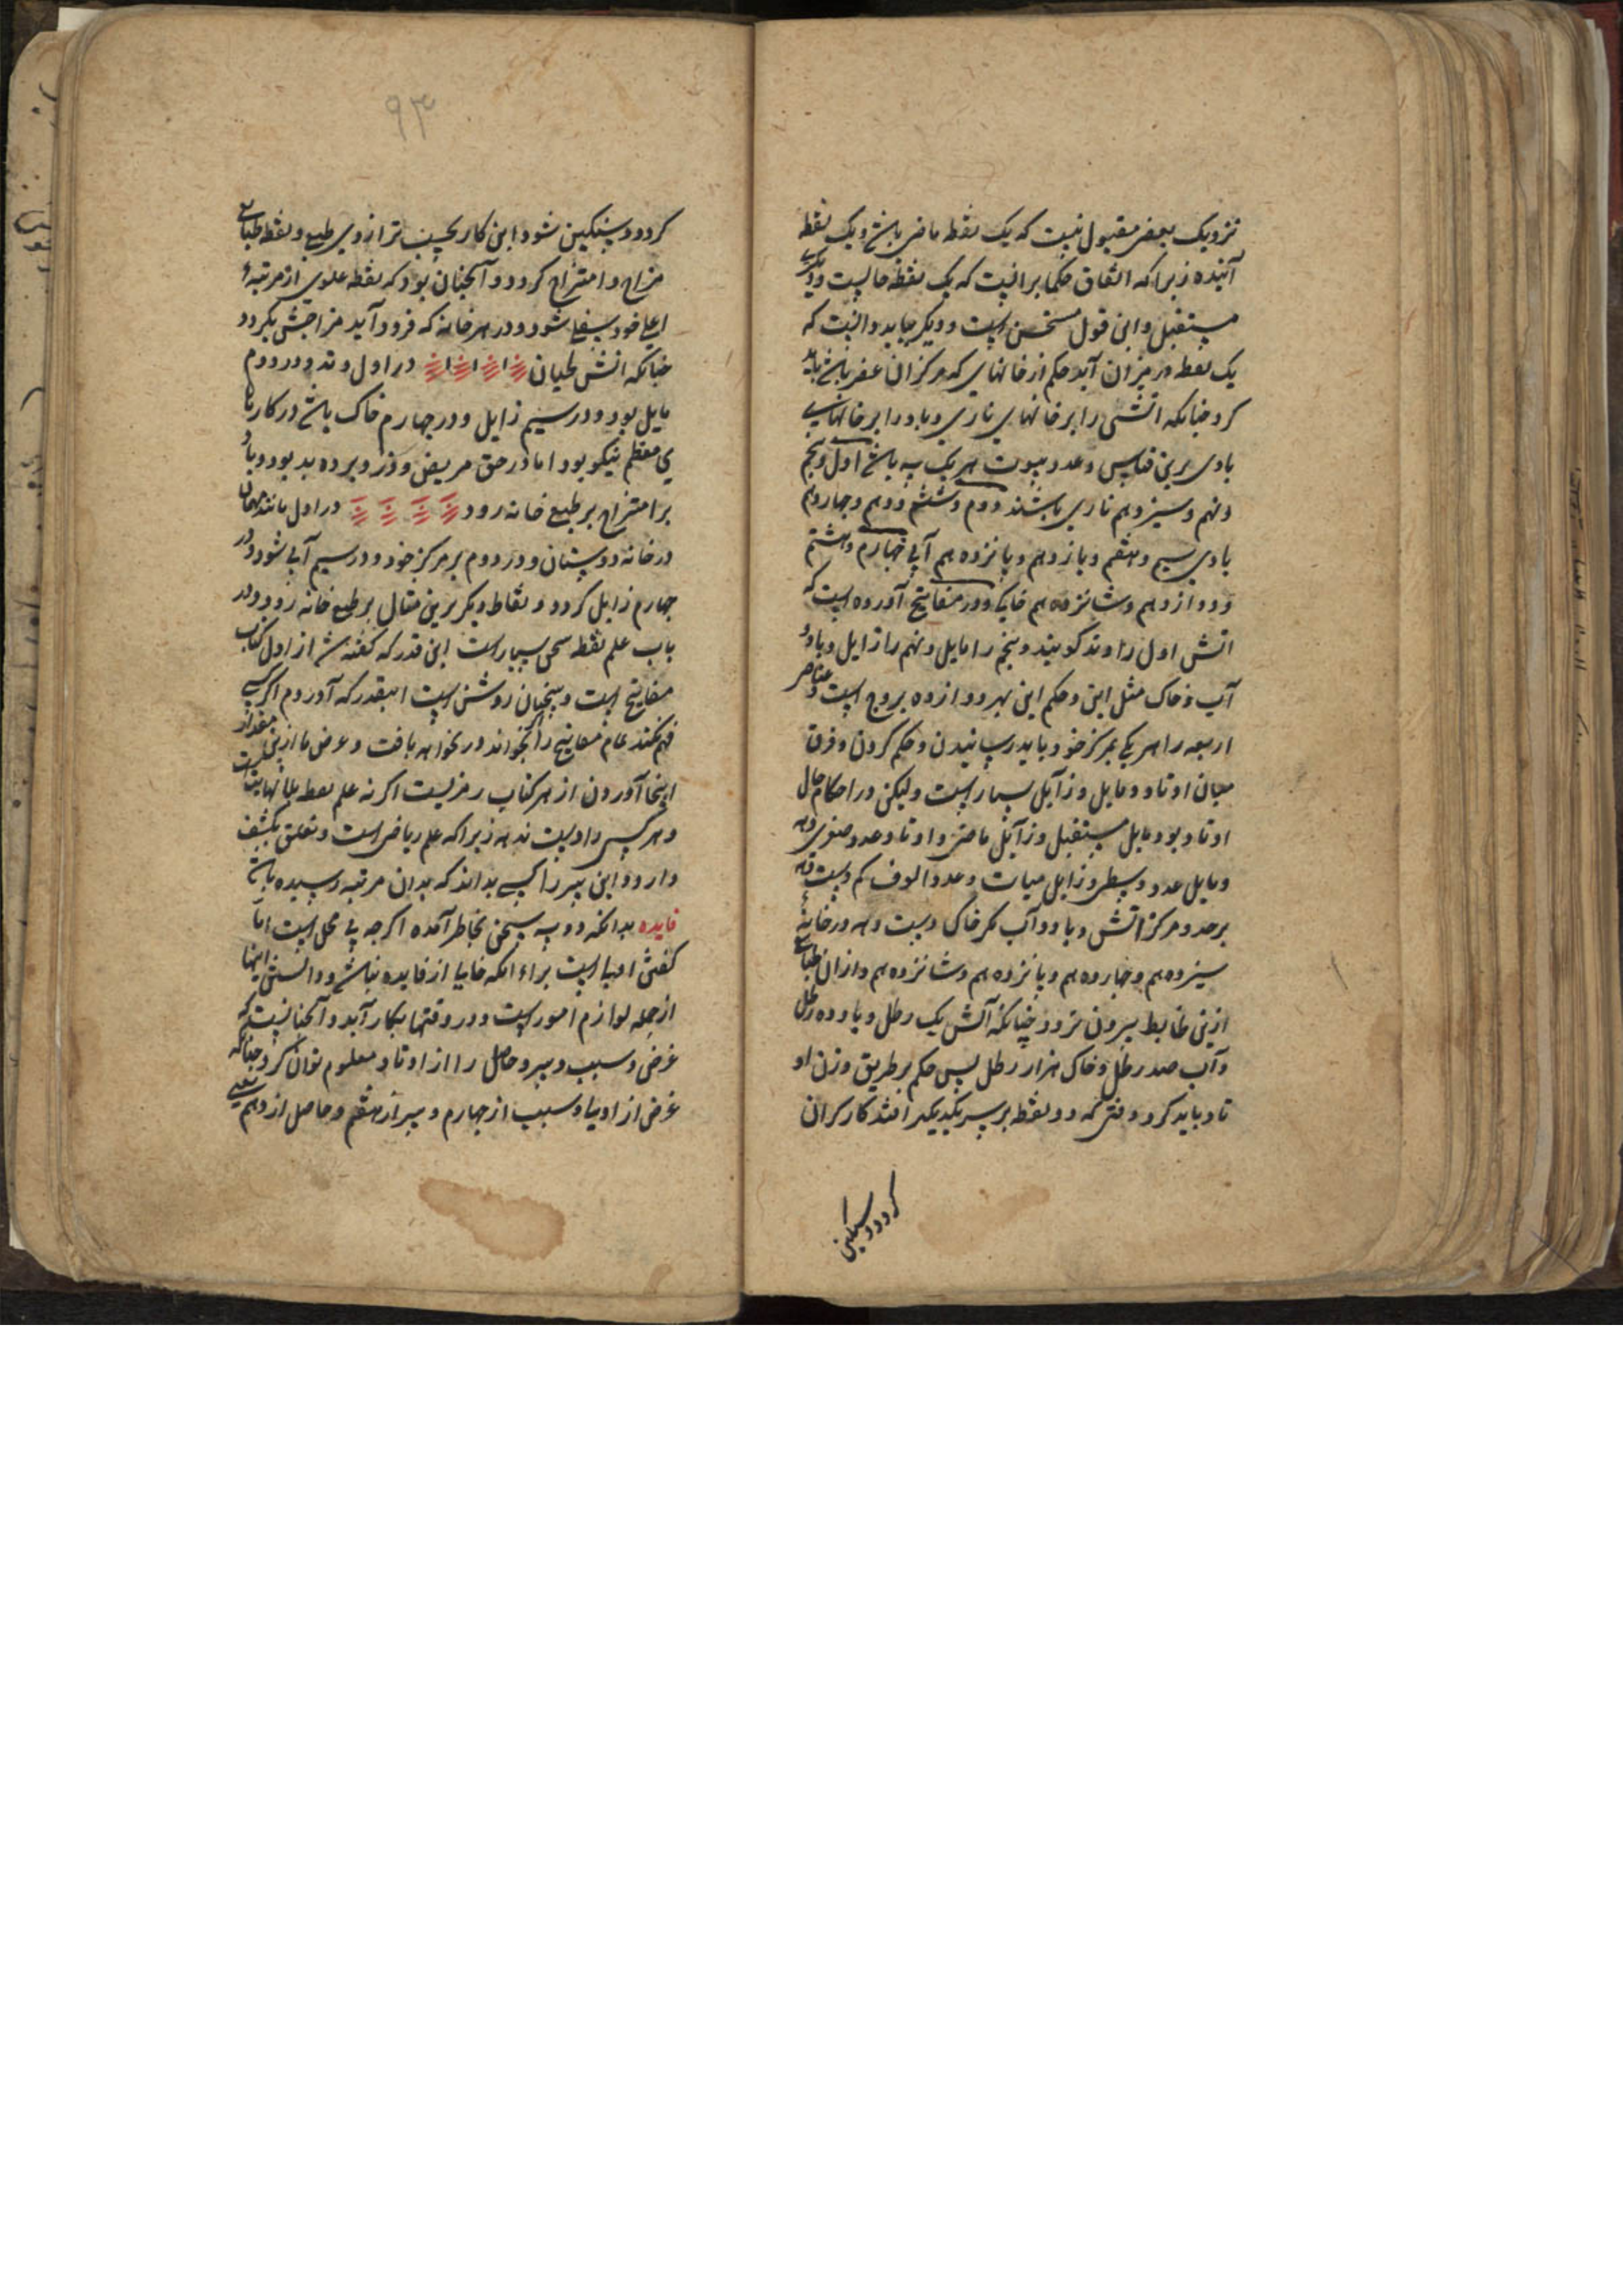 نزدیک بعضی مقبول نیست که یک نقطه ماضی باشد و یک نقطه
آینده زیرا که اتفاق حکما برانست که یک نقطه حالیست و دیگری
مستقبل و این قول مستحسن است و دیگر بباید دانست که
یک نقطه در میزان آید حکم از خانهای که مرکز ان عنصر باشد باید
کرد چنانکه اتشی را بر خانهای ناری و باد را بر خانهای
بادی برین قیاس و عدد بیوت هر یک به باشد اول و پنجم
و نهم و سیزدهم ناری باشند دوم و ششم و دهم و چهاردهم
بادی سیم و هفتم و یازدهم و پانزدهم آبی چهارم و هشتم
و دوازدهم و شانزدهم خاکی و در مفاتیح آورده است که
اتش اول را وتد گویند و پنجم را مایل و نهم را زایل و باد و
آب و خاک مثل این و حکم این بهر دوازده بروج است و عناصر
اربعه را هر یکی بمرکز خود باید رسانیدن و حکم کردن و فرق
میان اوتاد و مایل و زایل بسیار است ولیکن در احکام حال
اوتاد بود و مایل مستقبل و زایل ماضی و اوتاد عدد صغری دهد
و مایل عدد وسطی و زایل میات و عدد الوف کم دست دهد
برحد و مرکز اتش و باد و آب مگر خاک دست دهد در خانه
سیزدهم و چهاردهم و پانزدهم و شانزدهم و ازان
ازین ضابط بیرون نرود چنانکه آتش یک رطل و باد ده رطل
و آب صد رطل و خاک هزار رطل پس حکم بر طریق وزن او
تاد باید کرد وقتی که دو نقطه بر سر یکدیگر افتد کار گران
گردد و سنگین
۹۳
گردد و سنگین شود این کار بحسب ترازوی طبع و نقطه
مزاج و امتزاج گردد و آنچنان بود که نقطه علوی از مرتبه
اعلی خود سفلی شود و در هر خانه که فرود آید مزاجش بگردد
چنانکه اتش لحیان در اول وتد و در دوم
مایل بود و در سیم زایل و در چهارم خاک باشد در کارها
ی معظم نیکو بود اما در حق مریض و دزد و برده بد بود و باد
بر امتزاج بر طبع خانه رود در اول مانند مهمان
در خانه دوستان و در دوم بر مرکز خود و در سیم آبی شود و در
چهارم زایل گردد و نقاط دیگر برین مثال بر طبع خانه رود و در
باب علم نقطه سخن بسیار است این قدر که گفته شد از اول کتاب
مفاتیح است و سخنان روشن است اینقدر که آوردم اگر کسی
فهم نکند تمام مفاتیح را بخواند در نخواهد یافت و غرض ما ازین مقدار
اینجا آوردن از هر کتاب رمزیست اگر نه علم نقطه بی نهایتست
و هر کسی را دست ندهد زیرا که علم ریاضی است و تعلق بکشف
دارد و این سر را کسی بداند که بدان مرتبه رسیده باشد
فایده بدانکه دو سه سخن بخاطر آمده اگرچه بی محل است اما
گفتن اولیا است براء انکه خالیا از فایده نباشد و دانستن اینها
از جمله لوازم امور است و در وقتها بکار آید و آنچنانست که
غرض و سبب و سیر و حاصل را از اوتاد معلوم توان کرد چنانکه
غرض از اولیا و سبب از چهارم و سیر از هفتم و حاصل از دهم یعنی